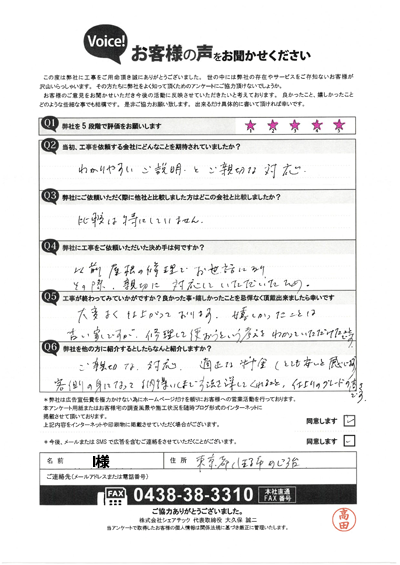 Voice!
お客様の声をお聞かせください
この度は弊社に工事をご用命頂き誠にありがとうございました。世の中には弊社の存在やサービスをご存知ないお客様が
沢山いらっしゃいます。その方たちに弊社をよく知って頂くためのアンケートにご協力頂けないでしょうか。
お客様のご意見をお聞かせいただき今後の活動に反映させていただきたいと考えております。良かったこと、嬉しかったこと
どのような些細な事でも結構です。是非ご協力お願い致します。出来るだけ具体的に書いて頂ければ幸いです。
Q1 弊社を5段階で評価をお願いします ★ ★ ★ ★ ★
Q2 当初、工事を依頼する会社にどんなことを期待されていましたか?
わかりやすい ご説明 と ご親切な 対応.
Q3 弊社にご依頼いただく際に他社と比較しました方はどこの会社と比較しましたか?
比較は特にしていません.
Q4 弊社に工事をご依頼いただいた決め手は何ですか?
以前 屋根の修理で お世話になり
その際、親切に 対応していただいたため.
Q5 工事が終わってみていかがですか?良かった事・嬉しかったことを忌憚なく頂戴出来ましたら幸いです
大変よく仕上がっております. 嬉しかったことは
古い家ですが、修理して使おうという考えを わかっていただけた
Q6 弊社を他の方に紹介するとしたらなんと紹介しますか?
ご親切な 対応. 適正な 料金
客側の身になって
※弊社は広告宣伝費を極力かけない為にホームページだけを頼りにお客様への営業活動を行っております。
本アンケート用紙またはお客様宅の調査風景や施工状況を随時ブログ形式のインターネットに
掲載させて頂いております。
上記内容をインターネットや印刷物に掲載させていただく場合がございます。 同意します
※今後、メールまたは SMS で広告を含むご連絡をさせていただくことがございます。 同意します
名前 I様 住所 東京都
ご連絡先(メールアドレスまたは電話番号)
FAX 0438-38-3310 本社直通 FAX番号
ご協力ありがとうございました。
株式会社シェアテック 代表取締役 大久保 誠二
当アンケートで取得したお客様の個人情報は関係法規に基づき厳正に管理いたします。
高田